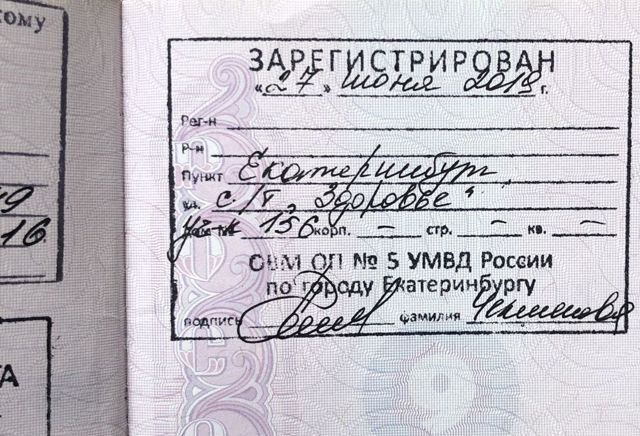 ому
ЗАРЕГИСТРИРОВАН
«27» июня 2019 г.
Рег-н
Р-н
Пункт Екатеринбург
ул. с/т „Здоровье"
уч. № 156 корп. – стр. – кв. –
ОВМ ОП № 5 УМВД России
по городу Екатеринбургу
подпись фамилия
9
16
ТА